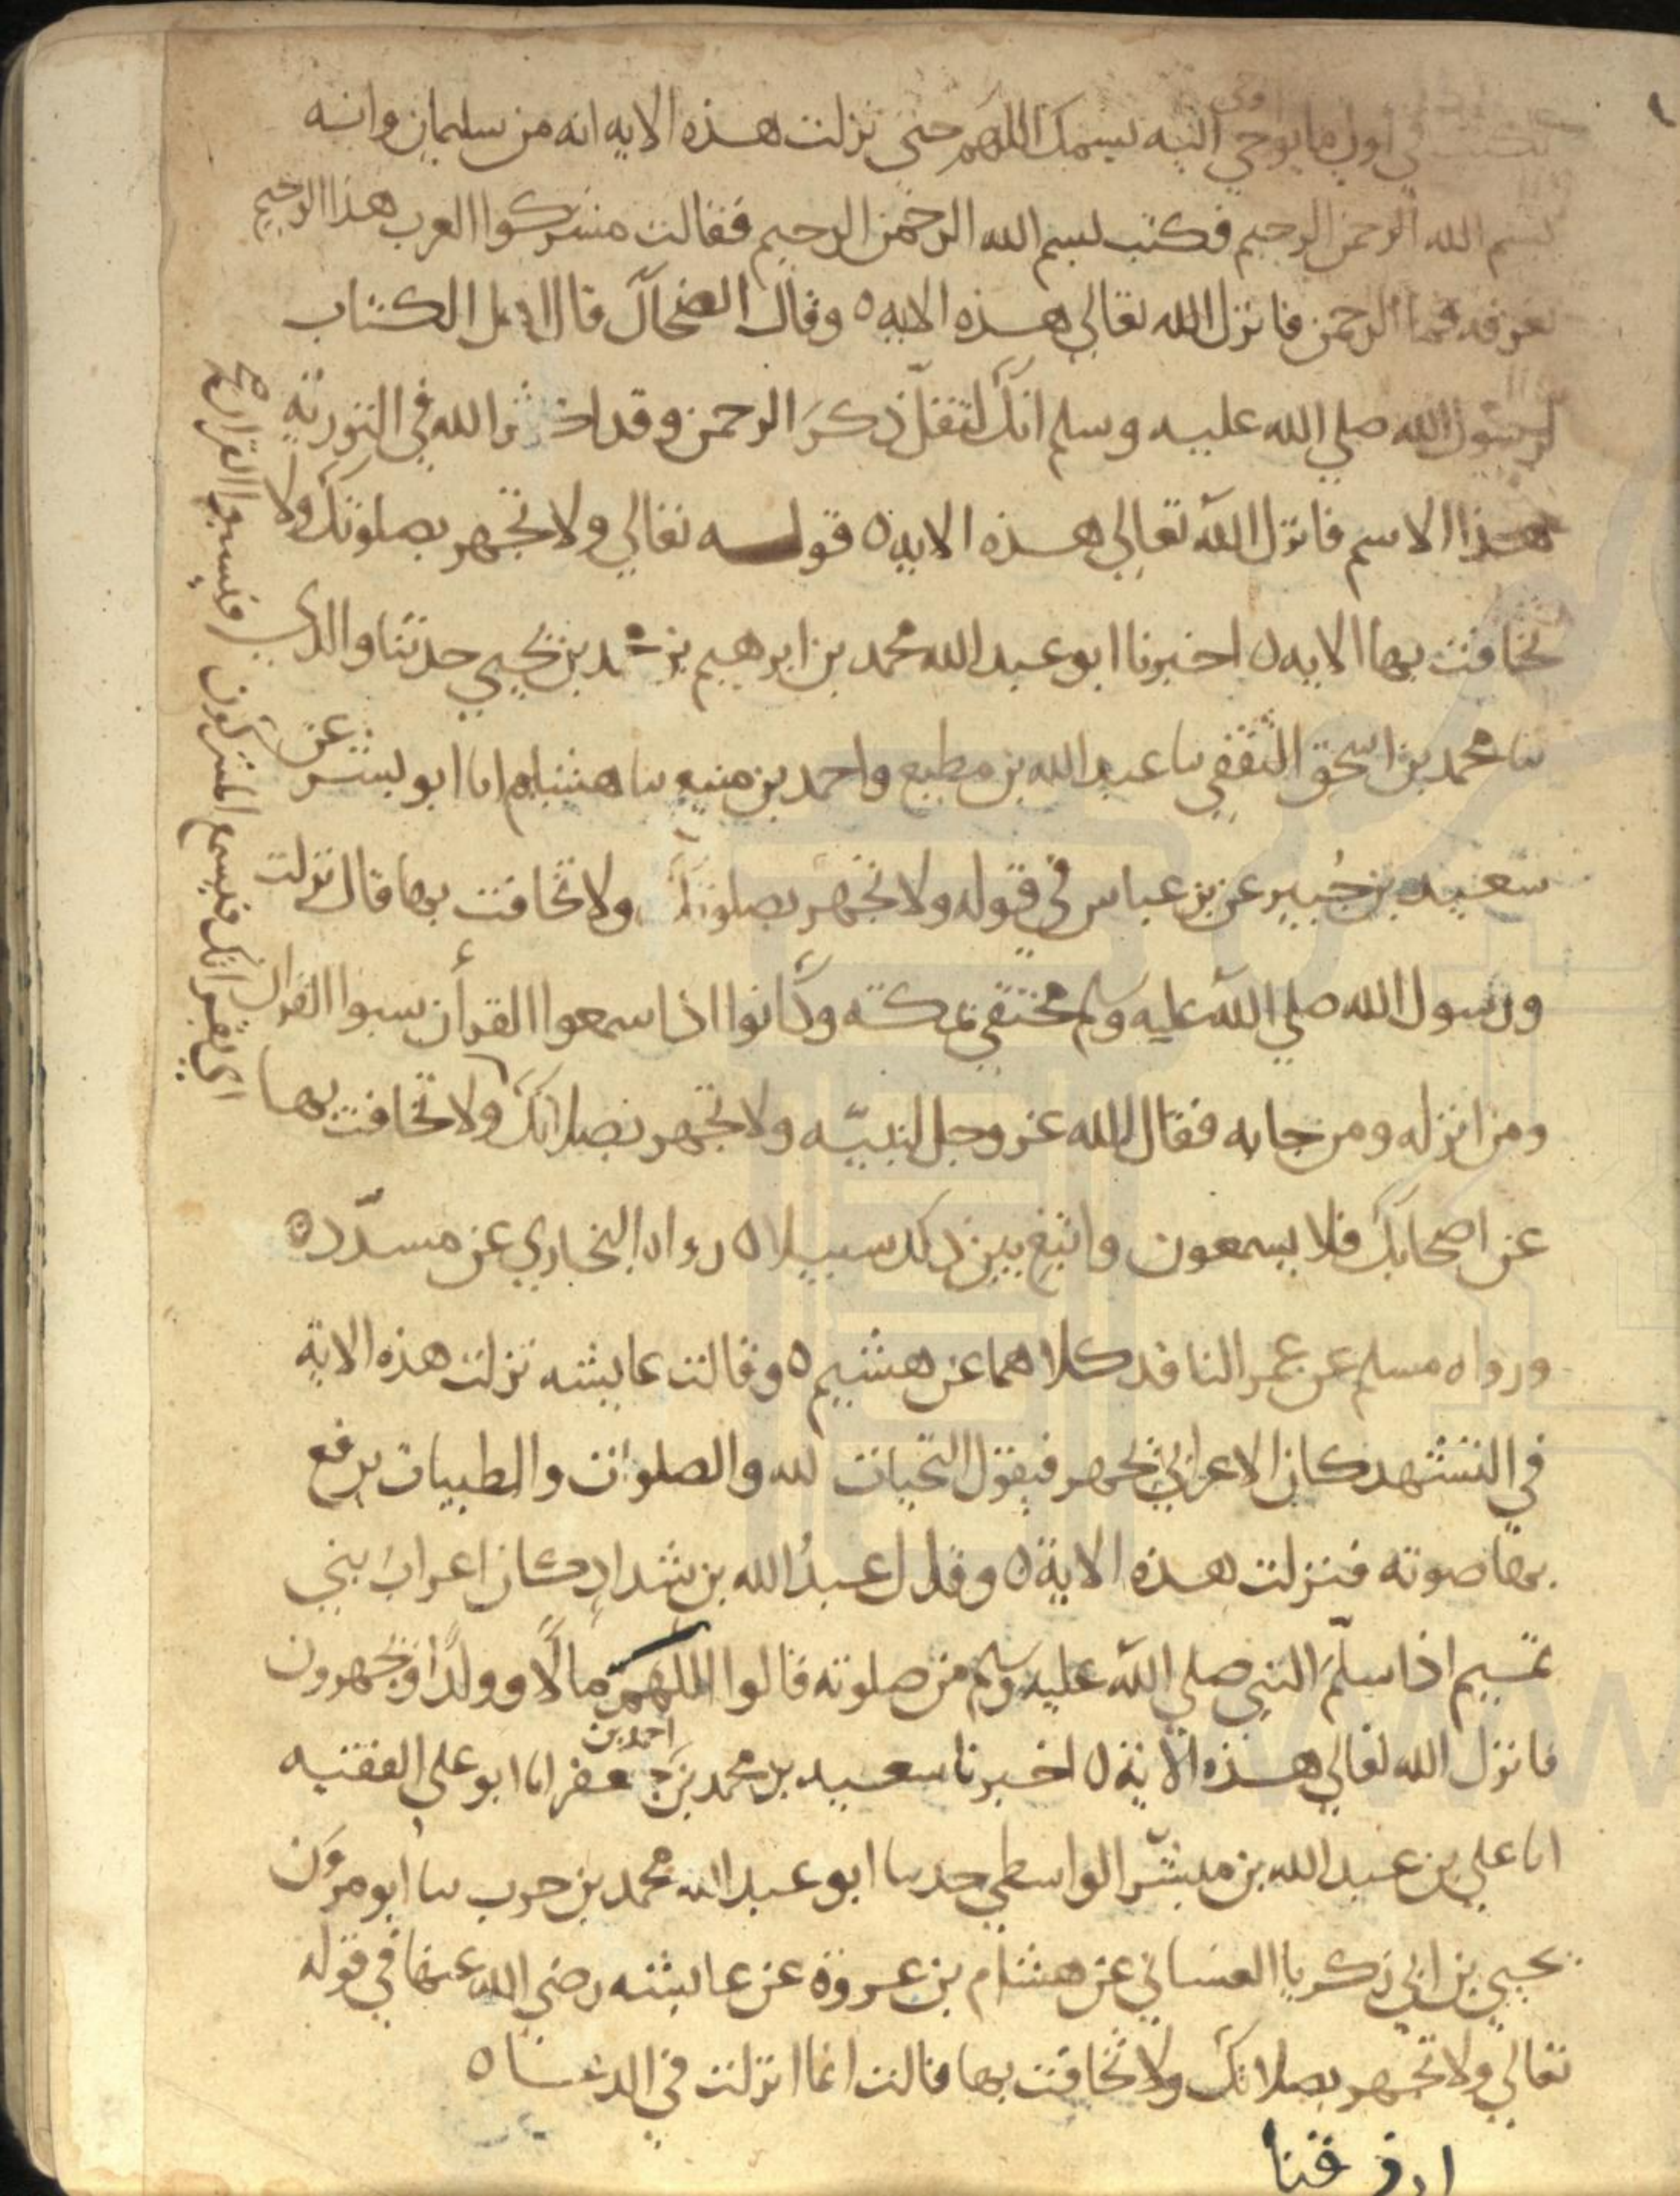 يكتب في اول ما يوحي اليه بسمك اللهم حتى نزلت هذه الايه انه من سليمان وانه
بسم الله الرحمن الرحيم فكتب بسم الله الرحمن الرحيم فقالت مشركوا العرب هذا الرحيم
نعرفه فما الرحمن فانزل الله تعالي هذه الايه ٥ وقال الضحاك قال اهل الكتاب
لرسول الله صلي الله عليه وسلم انك لتقلّ ذكر الرحمن وقد اكثر الله في التورية
هذا الاسم فانزل الله تعالي هذه الايه ٥ قوله تعالي ولا تجهر بصلوتك ولا
تخافت بها الايه ٥ اخبرنا ابو عبد الله محمد بن ابرهيم بن محمد بن يحيي حدثنا والدي
ثنا محمد بن اسحق الثقفي ثنا عبد الله بن مطيع واحمد بن منيع ثنا هشيم انا ابو بشر عن
سعيد بن جُبير عن بن عباس في قوله ولا تجهر بصلوتك ولا تخافت بها قال نزلت
ورسول الله صلي الله عليه وسلم مختفي بمكة وكانوا اذا سمعوا القرأن سبوا القران
ومن انزله ومن جا به فقال الله عز وجل لنبيّه ولا تجهر بصلاتك ولا تخافت بها
اي بقراتك فيسمع المشركون فيسبوا القران صح
عن اصحابك فلا يسمعون وابتغ بين ذلك سبيلا ٥ رواه البخاري عن مسدّد ٥
ورواه مسلم عن عمر الناقد كلاهما عن هشيم ٥ وقالت عايشه نزلت هذه الاية
في التشهد كان الاعرابي يجهر فيقول التحيات لله والصلوات والطيبات يرفع
بها صوته فنزلت هذه الاية ٥ وقال عبدُ الله بن شدادٍ كان اعراب بني
تميم اذا سلّم النبي صلي الله عليه وسلم من صلوته قالوا اللهم مالًا وولدًا ويجهرون
فانزل الله تعالي هذه الاية ٥ اخبرنا سعيد بن محمد بن احمد بن جعفر انا ابو علي الفقيه
انا علي بن عبد الله بن مبشّر الواسطي حدثنا ابو عبد الله محمد بن حرب ثنا ابو مروٰن
يحيي بن ابي زكريا الغساني عن هشام بن عروة عن عايشه رضي الله عنها في قوله
تعالي ولا تجهر بصلاتك ولا تخافت بها قالت انما انزلت في الدعا ٥